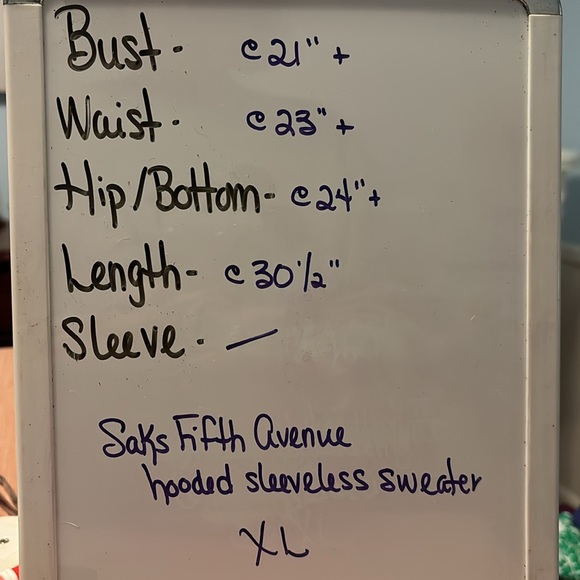 Bust - c 21" +
Waist - c 23" +
Hip/Bottom - c 24" +
Length - c 30 1/2"
Sleeve - —
Saks Fifth Avenue
hooded sleeveless sweater
XL